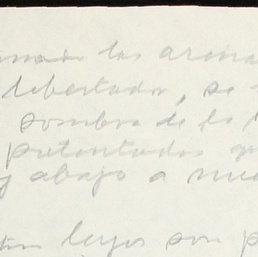 las arena
libertador, se
sombra de la
potentados qu
y abajo a nue
leyes son p